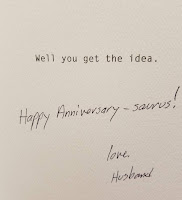 Well you get the idea.
Happy Anniversary-saurus!
love.
Husband